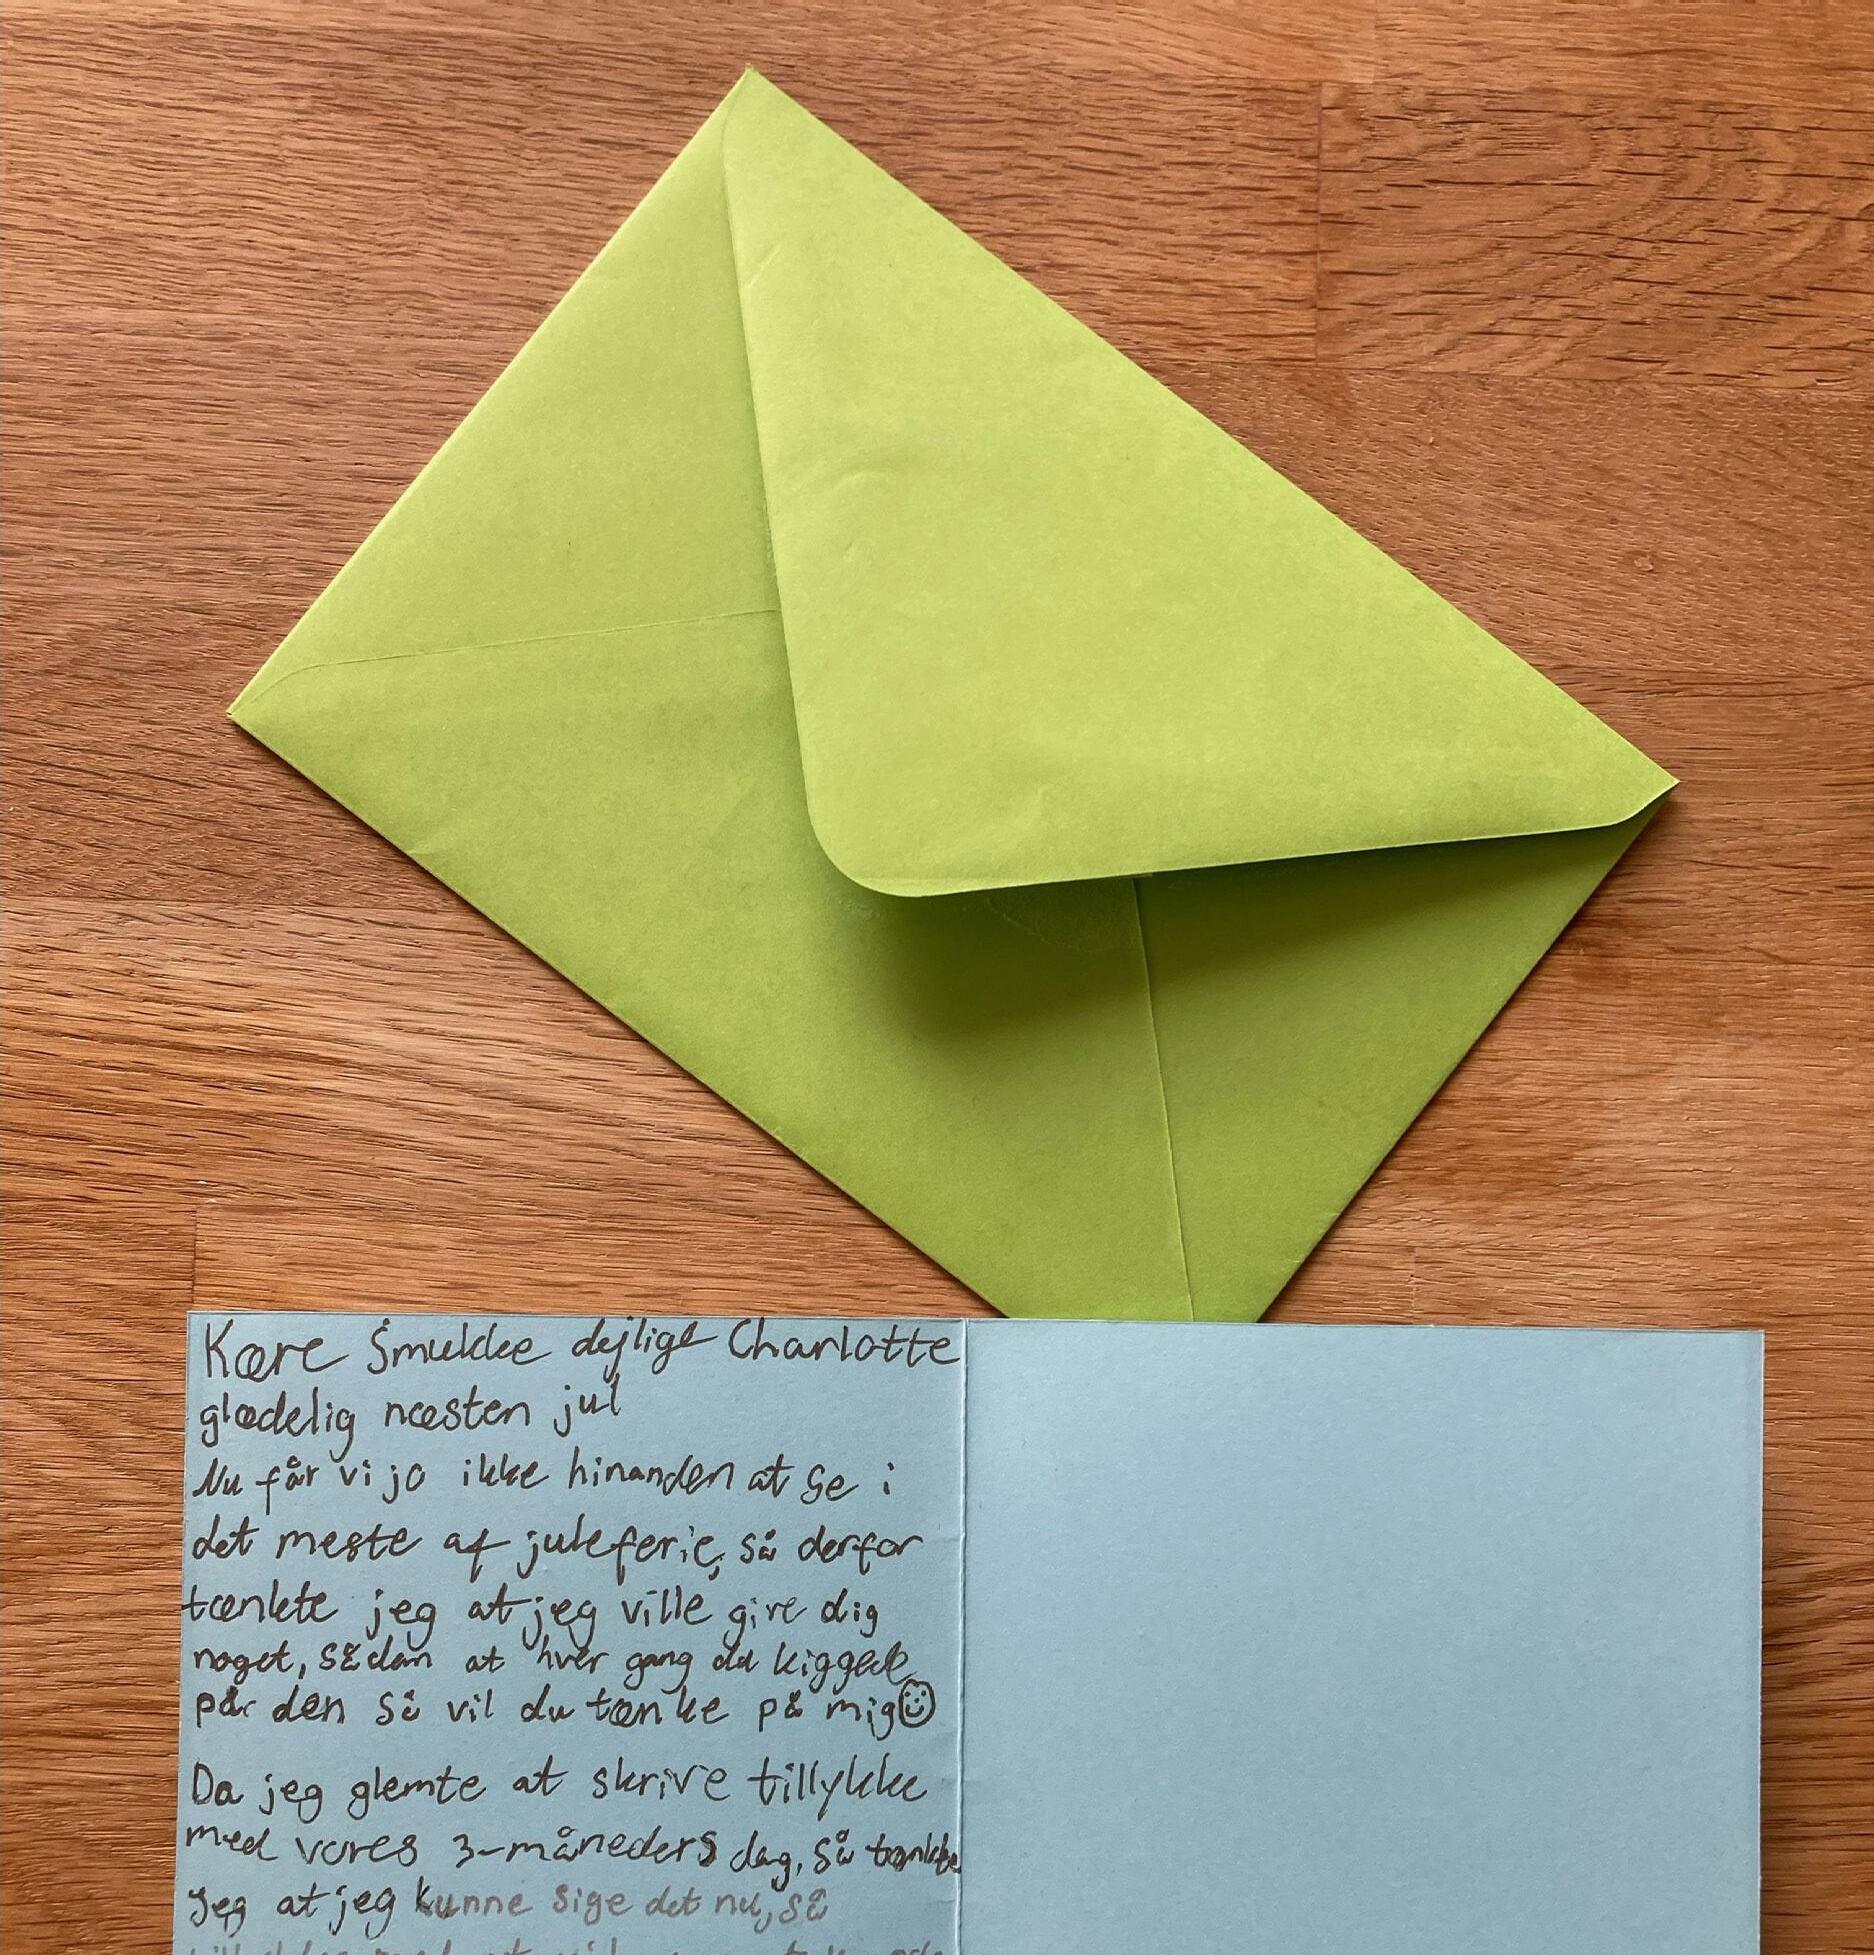 Kære Smukke dejlige Charlotte
glædelig næsten jul
Nu får vi jo ikke hinanden at se i
det meste af juleferie, så derfor
tænkte jeg at jeg ville give dig
noget, sådan at hver gang du kiggede
på den så vil du tænke på mig
Da jeg glemte at skrive tillykke
med vores 3-måneders dag, så tænkte
jeg at jeg kunne sige det nu, så